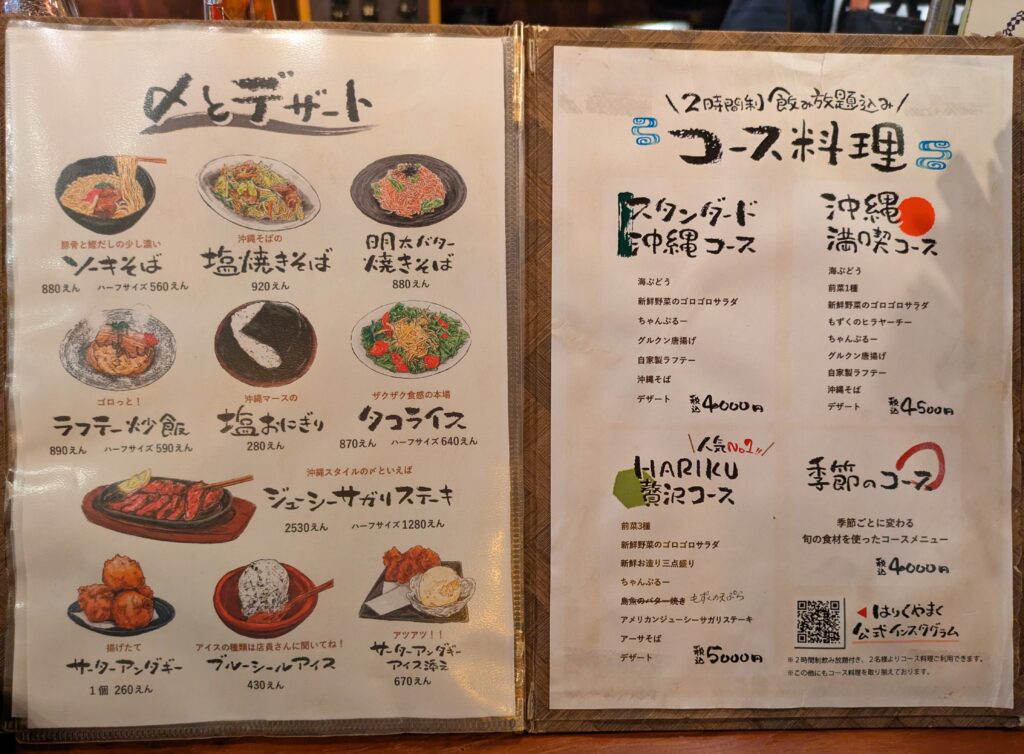 〆とデザート
豚骨と鰹だしの少し濃い
ソーキそば
880えん ハーフサイズ 560えん
沖縄そばの
塩焼きそば
920えん
明太バター
焼きそば
880えん
ゴロっと！
ラフテー炒飯
890えん ハーフサイズ 590えん
沖縄マースの
塩おにぎり
280えん
ザクザク食感の本場
タコライス
870えん ハーフサイズ 640えん
沖縄スタイルの〆といえば
ジューシーサガリステーキ
2530えん ハーフサイズ 1280えん
揚げたて
サーターアンダギー
1個 260えん
アイスの種類は店員さんに聞いてね！
ブルーシールアイス
430えん
アツアツ！！
サーターアンダギー
アイス添え
670えん
\2時間制 飲み放題込み/
コース料理
スタンダード
沖縄コース
海ぶどう
新鮮野菜のゴロゴロサラダ
ちゃんぷるー
グルクン唐揚げ
自家製ラフテー
沖縄そば
デザート
税込4000円
沖縄
満喫コース
海ぶどう
前菜1種
新鮮野菜のゴロゴロサラダ
もずくのヒラヤーチー
ちゃんぷるー
グルクン唐揚げ
自家製ラフテー
沖縄そば
デザート
税込4500円
\人気No1!!
HARIKU
贅沢コース
前菜3種
新鮮野菜のゴロゴロサラダ
新鮮お造り三点盛り
ちゃんぷるー
島魚のバター焼き もずくの天ぷら
アメリカンジューシーサガリステーキ
アーサそば
デザート
税込5000円
季節のコース
季節ごとに変わる
旬の食材を使ったコースメニュー
税込4000円
◀はりくやまく
公式インスタグラム
※2時間制飲み放題付き、2名様よりコース料理ご利用できます。
※この他にもコース料理を取り揃えております。